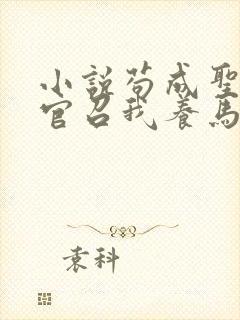 小說苟成聖
官召我養馬
袁科